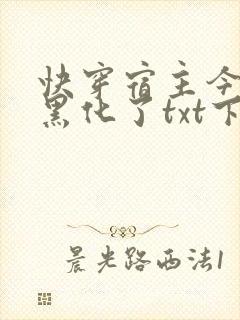 快穿宿主今
黑化了txt下
晨光路西法1